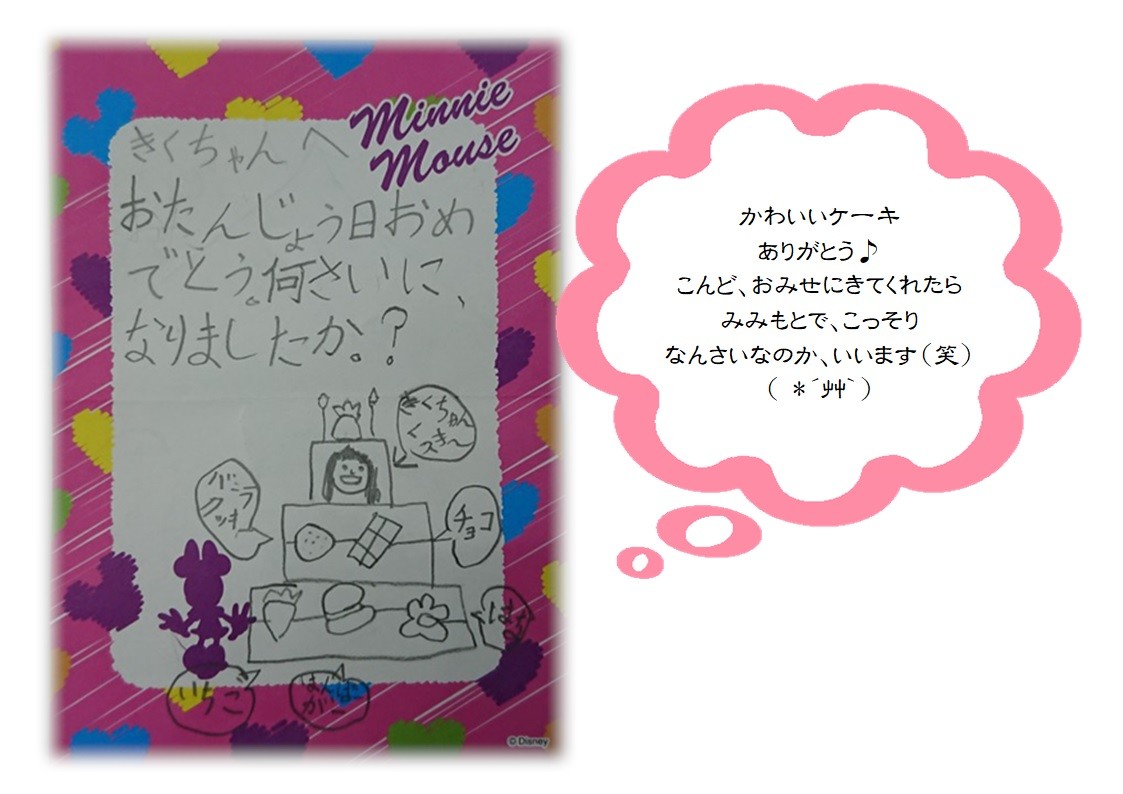 きくちゃんへ
Minnie
Mouse
おたんじょう日おめ
でとう。何さいに、
なりましたか。?
きくちゃん
バニラ
クッキー
チョコ
はな
いちご
はんばー
がー
©Disney
かわいいケーキ
ありがとう♪
こんど、おみせにきてくれたら
みみもとで、こっそり
なんさいなのか、いいます(笑)
( *´艸`)